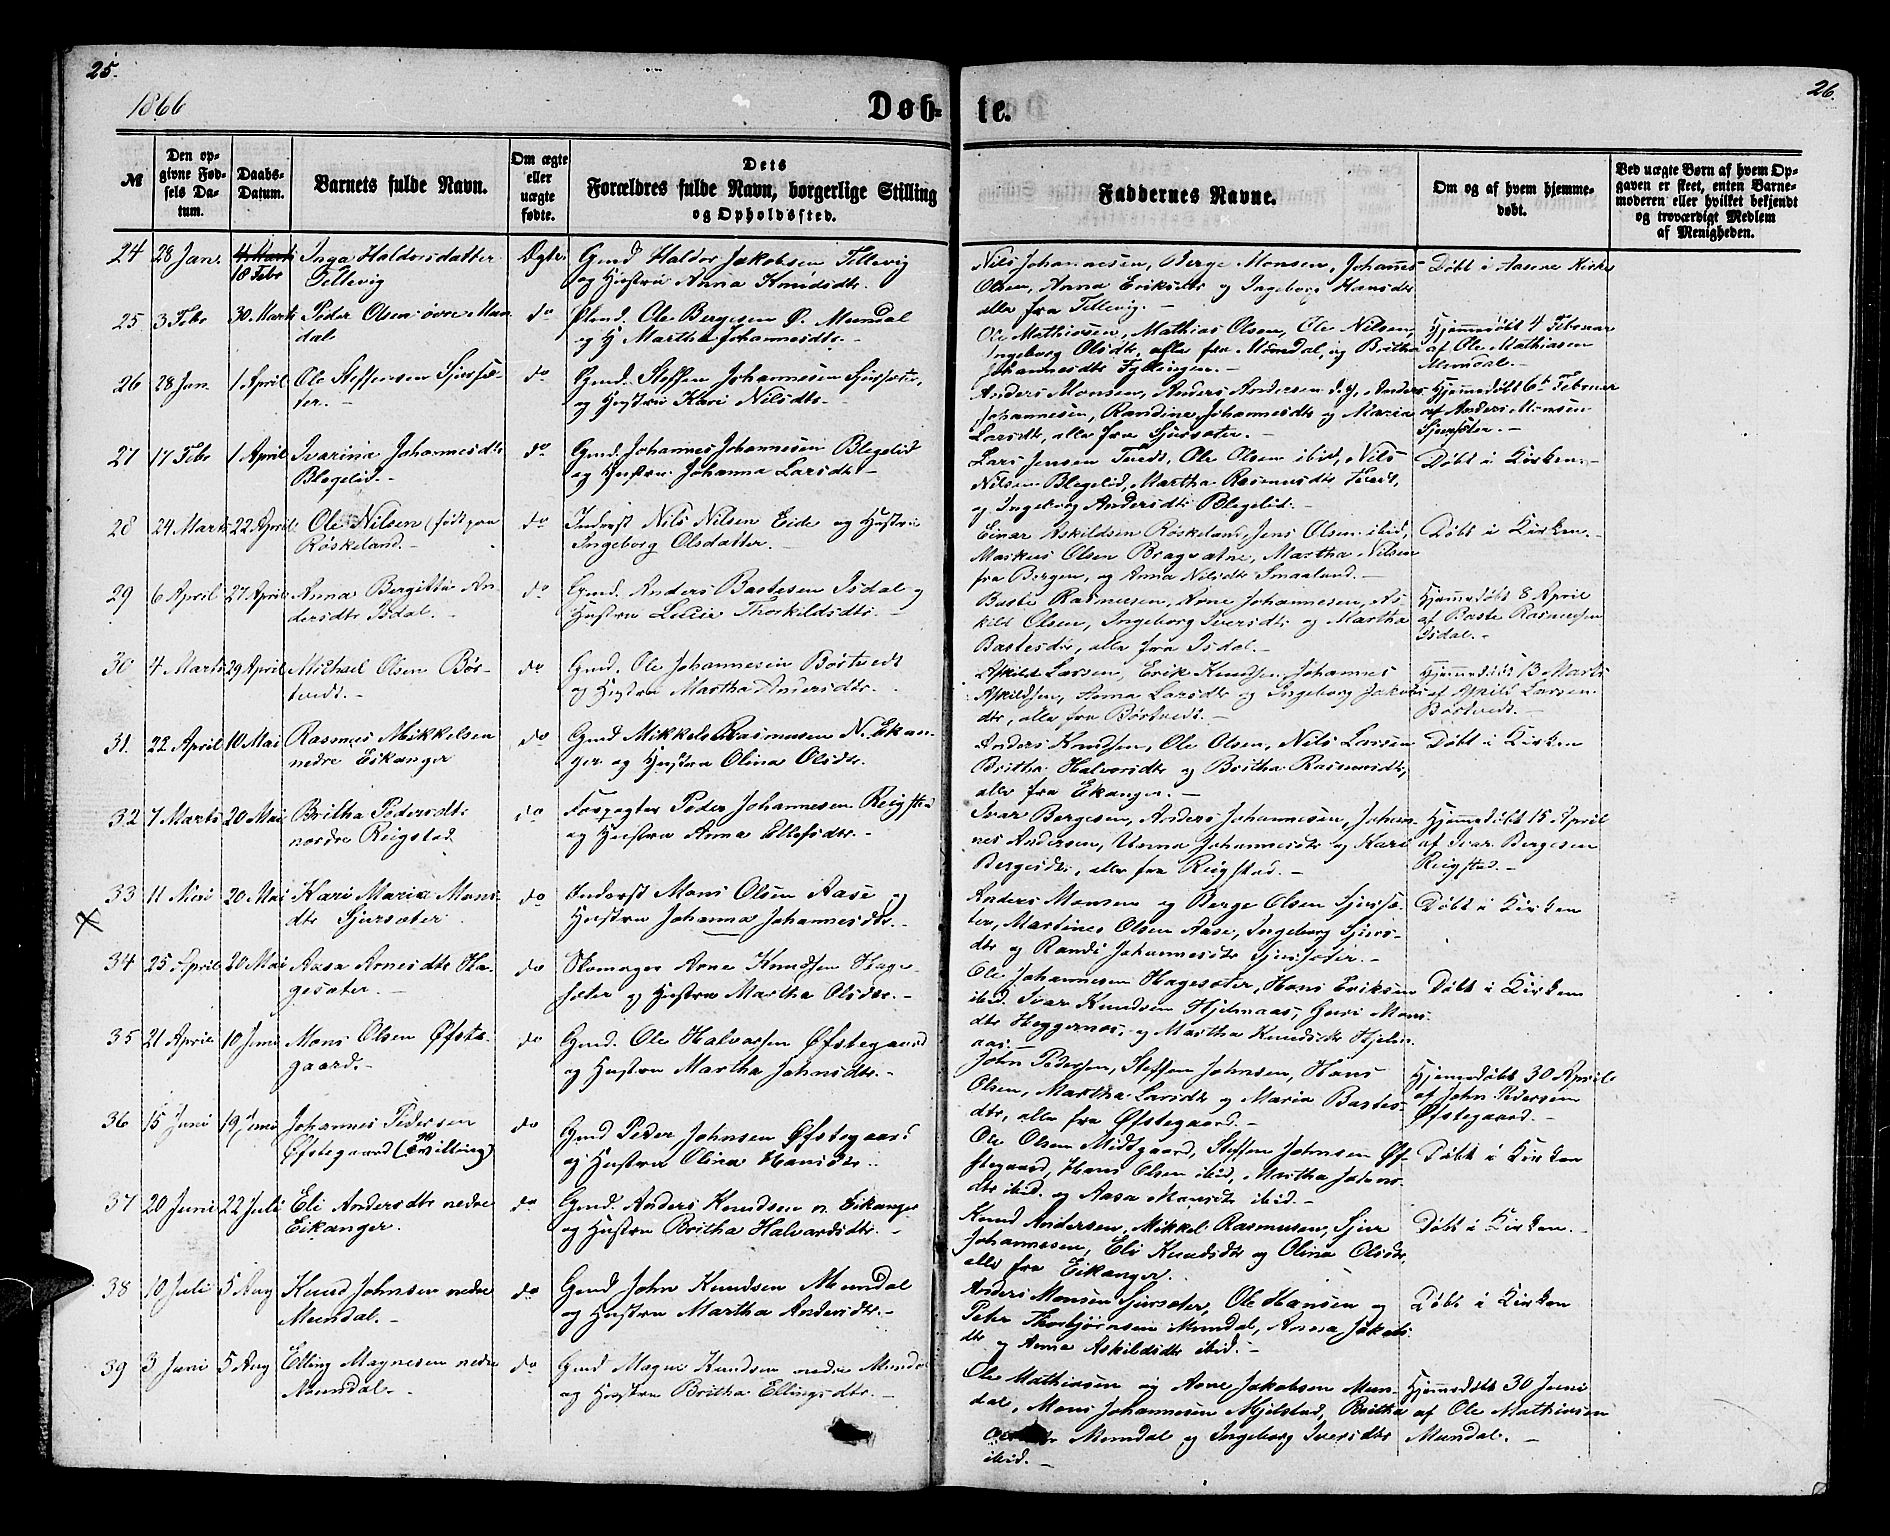 25.
26.
1866
Døb-
te.
№
Den op-
givne Fød-
sels Da-
tum.
Daabs-
Datum.
Barnets fulde Navn.
Om ægte
eller
uægte
fødte.
Dets
Forældres fulde Navn, borgerlige Stilling
og Opholdssted.
Faddernes Navne.
Om og af hvem hjemme-
døbt.
Ved uægte Børn af hvem Op-
gaven er skeet, enten Barne-
moderen eller hvilket bekjendt
og troværdigt Medlem
af Menigheden.
24
28 Jan.
18 Febr
Inga Haldorsdatter
Tellevig
Ægte
Gmd Haldor Jakobsen Tellevig
og Hustru Anna Knudsdtr.
Nils Johannesen, Berge Monsen, Johannes
Olsen, Anna Eriksdtr og Ingeborg Hansdtr
alle fra Tellevig.
Døbt i Aasene Kirke
25
3 Febr
30 Marts
Peder Olsen øvre Mun-
dal
do
Plmd. Ole Bergesen Ø. Mundal
og H Martha Johannesdtr. -
Ole Mathiasen, Mathias Olsen, Ole Nilsen,
Ingeborg Olsdtr, alle fra Mundal, og Britha
Johannesdtr Fyllingen. -
Hjemmedøbt 4 Februar
af Ole Mathiasen
Mundal. -
26
28 Jan.
1 April
Ole Steffensen Sjursæ-
ter. -
do
Gmd. Steffen Johannesen Sjursæter,
og Hustru Kari Nilsdtr. -
Anders Monsen, Anders Andersen d. y., Anders
Johannesen, Randina Johannesdtr og Maria
Larsdtr, alle fra Sjursæter. -
Hjemmedøbt 6t Februar
af Anders Monsen
Sjursæter. -
27
17 Febr
1 April
Ivarina Johannesdtr
Blegelid. -
do
Gmd. Johannes Johannesen Blegelid
og Hustru Johanna Larsdtr -
Lars Jensen Tvedt, Ole Olsen ibid, Nils
Nilsen Blegelid, Martha Rasmusdtr Tvedt,
og Ingeborg Andersdtr Blegelid. -
Døbt i Kirken. -
28
24 Marts
22 April
Ole Nilsen (født paa
Røskeland. -
do
Inderst Nils Nilsen Eide og Hustru
Ingeborg Olsdatter. -
Einar Askildsen Røskeland, Jens Olsen ibid,
Markus Olsen Bragvatne, Martha Nilsen
fra Bergen, og Anna Nilsdtr Smaaland. -
Døbt i Kirken. -
29
6 April
27 April
Anna Bergitta An-
dersdtr Isdal. -
do
Gmd. Anders Bastesen Isdal og
Hustru Lucie Thorkildsdtr. -
Baste Rasmusen, Arne Johannesen, As-
kild Olsen, Ingeborg Iversdtr og Martha
Bastesdtr, alle fra Isdal. -
Hjemmedøbt 8 April
af Baste Rasmusen
Isdal. -
30
4 Marts
29 April
Michael Olsen Bør-
tvedt. -
do
Gmd. Ole Johannesen Børtvedt
og Hustru Martha Andersdtr. -
Askild Larsen, Erik Knudsen, Johannes
Askildsen, Anna Larsdtr og Ingeborg Jakobs-
dtr, alle fra Børtvedt. -
Hjemmedøbt 13 Marts
af Askild Larsen
Børtvedt. -
31.
22 April
10 Mai
Rasmus Mikkelsen
nedre Eikanger
do
Gmd Mikkel Rasmusen N. Eikan-
ger og Hustru Olina Olsdtr.
Anders Knudsen, Ole Olsen, Nils Larsen
Britha Halvorsdtr og Britha Rasmusdtr,
alle fra Eikanger. -
Døbt i Kirken
32
7 Marts
20 Mai
Britha Pedersdtr
nordre Reigstad
do
Forpagter Peder Johannesen Reigstad
og Hustru Anna Ellefsdtr. -
Ivar Bergesen, Anders Johannesen, Johan-
nes Andersen, Unna Johannesdtr og Kari
Bergesdtr, alle fra Reigstad. -
Hjemmedøbt 15 April
af Ivar Bergesen
Reigstad. -
33
11 Mai
20 Mai
Kari Maria Mons-
dtr Sjursæter
do
Inderst Mons Olsen Aase og
Hustru Johanna Johannesdtr. -
Anders Monsen og Berge Olsen Sjursæ-
ter, Martines Olsen Aase, Ingeborg Sjurs-
dtr og Randi Johannesdtr Sjursæter. -
Døbt i Kirken
34
25 April
20 Mai
Aasa Arnesdtr Ha-
gesæter. -
do
Skomager Arne Knudsen Hage-
sæter og Hustru Martha Olsdtr. -
Ole Johannesen Hagesæter, Hans Eriksen
ibid. Ivar Knudsen Hjelmaas, Guri Mons-
dtr Heggernæs, og Martha Knudsdtr Hjelm-
aas. -
Døbt i Kirken
35
21 April
10 Juni
Mons Olsen Øfste-
gaard. -
do
Gmd. Ole Halvorsen Øfstegaard
og Hustru Martha Johnsdtr. -
John Pedersen, Steffen Johnsen, Hans
Olsen, Martha Larsdtr og Maria Bastes-
dtr, alle fra Øfstegaard. -
Hjemmedøbt 30 April
af John Pedersen
Øfstegaard. -
36
15 Juni
19 Juni
Johannes Pedersen
Øfstegaard (Tvilling)
do
Gmd Peder Johnsen Øfstegaard
og Hustru Olina Hansdtr. -
Ole Olsen Midtgaard, Steffen Johnsen Øf-
stegaard, Hans Olsen ibid, Martha Johns-
dtr ibid. og Aasa Monsdtr ibid. -
Døbt i Kirken
37
20 Juni
22 Juli
Eli Andersdtr nedre
Eikanger.
do
Gmd. Anders Knudsen n. Eikanger
og Hustru Britha Halvardsdtr. -
Knud Andersen, Mikkel Rasmusen, Sjur
Johannesen, Eli Knudsdtr og Olina Olsdtr,
alle fra Eikanger.
Døbt i Kirken. -
38
10 Juli
5 Aug
Knud Johnsen nedre
Mundal. -
do
Gmd John Knudsen Mundal
og Hustru Martha Andersdtr. -
Anders Monsen Sjursæter, Ole Hansen og
Peter Thorbjørnsen Mundal, Anna Jakobs-
dtr og Anna Askildsdtr ibid. -
Døbt i Kirken
39
3 Juni
5 Aug
Elling Magnesen nedre
Mundal. -
do
Gmd Magne Knudsen nedre Mundal
og Hustru Britha Ellingsdtr. -
Ole Mathiasen og Arne Jakobsen Mun-
dal, Mons Johannesen Mjelstad, Britha
Mundal og Ingeborg Iversdtr
ibid. -
Hjemmedøbt 30 Juni
af Ole Mathiasen
Mundal. -